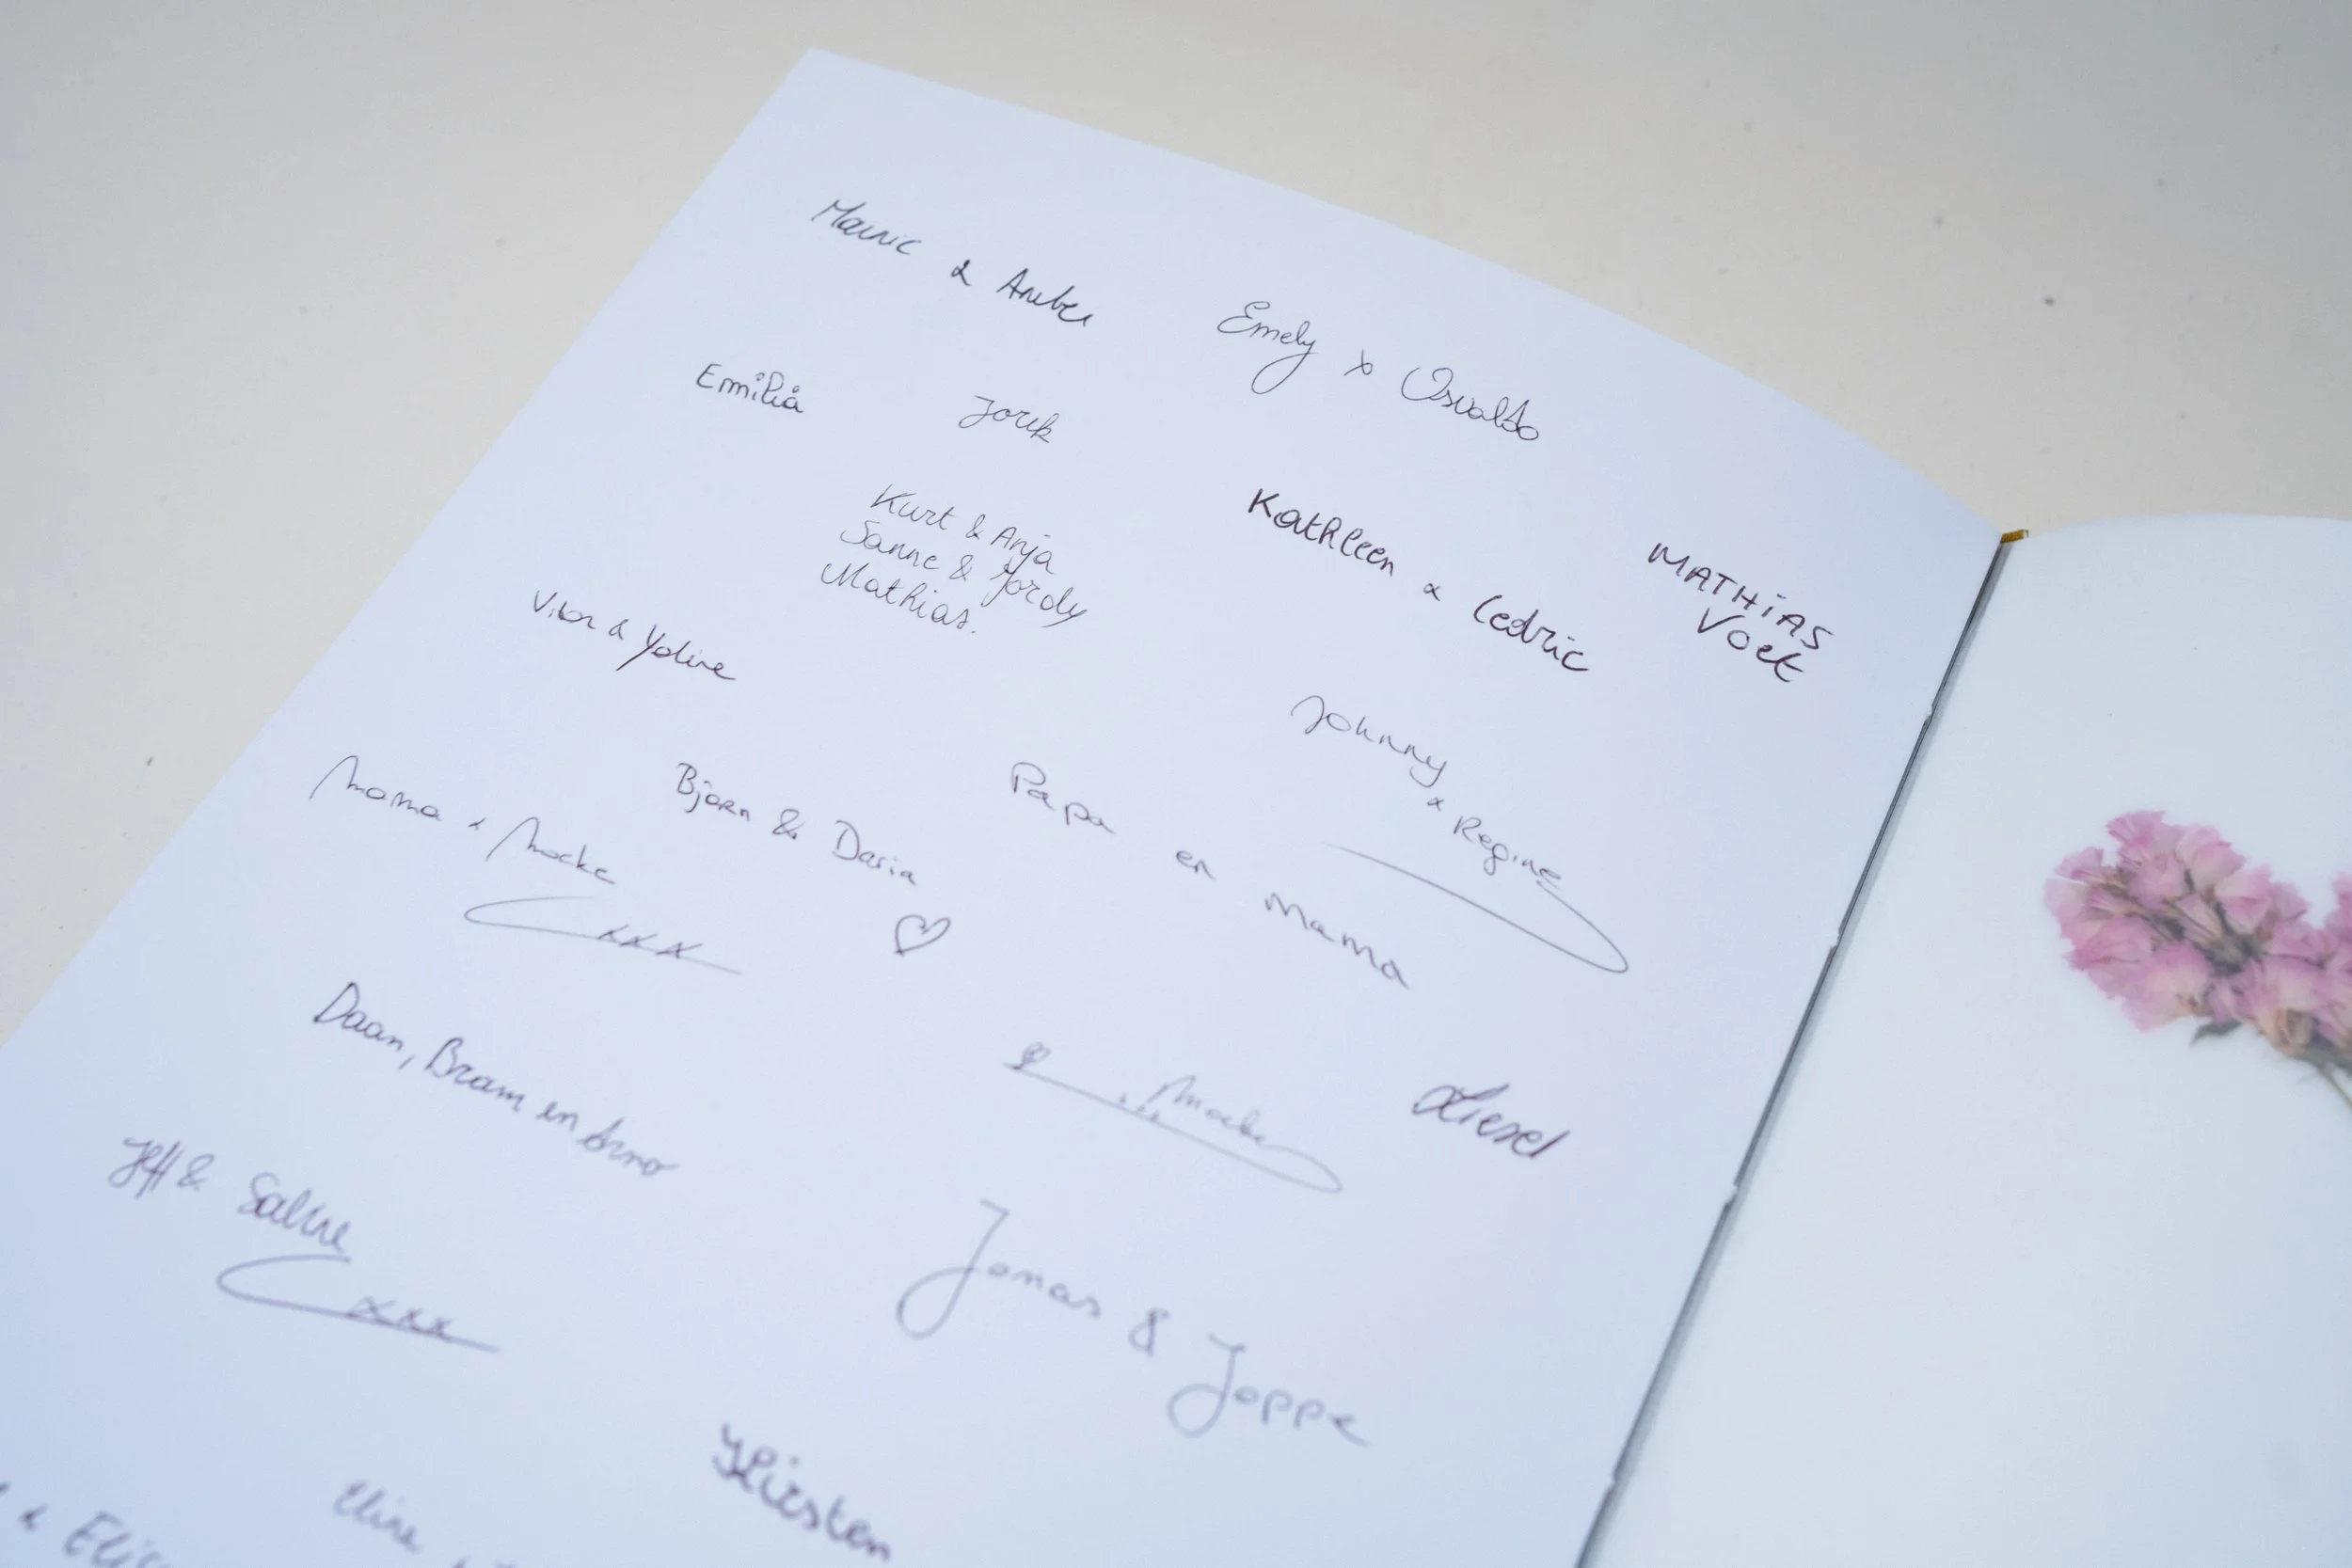 & Amber
Emely & Osvaldo
Emilia
Jorik
Kurt & Anja
Sanne & Jordy
Mathias.
Kathleen & Cedric
MATHiAS
Voet
& Yoline
Johnny
& Regine
Mama &
xxx
Bjorn & Daria
♡
Papa en Mama
Daan, Bram en Arno
Liesel
Jeff & Sabine
xxx
Jonas & Joppe
Kirsten
&